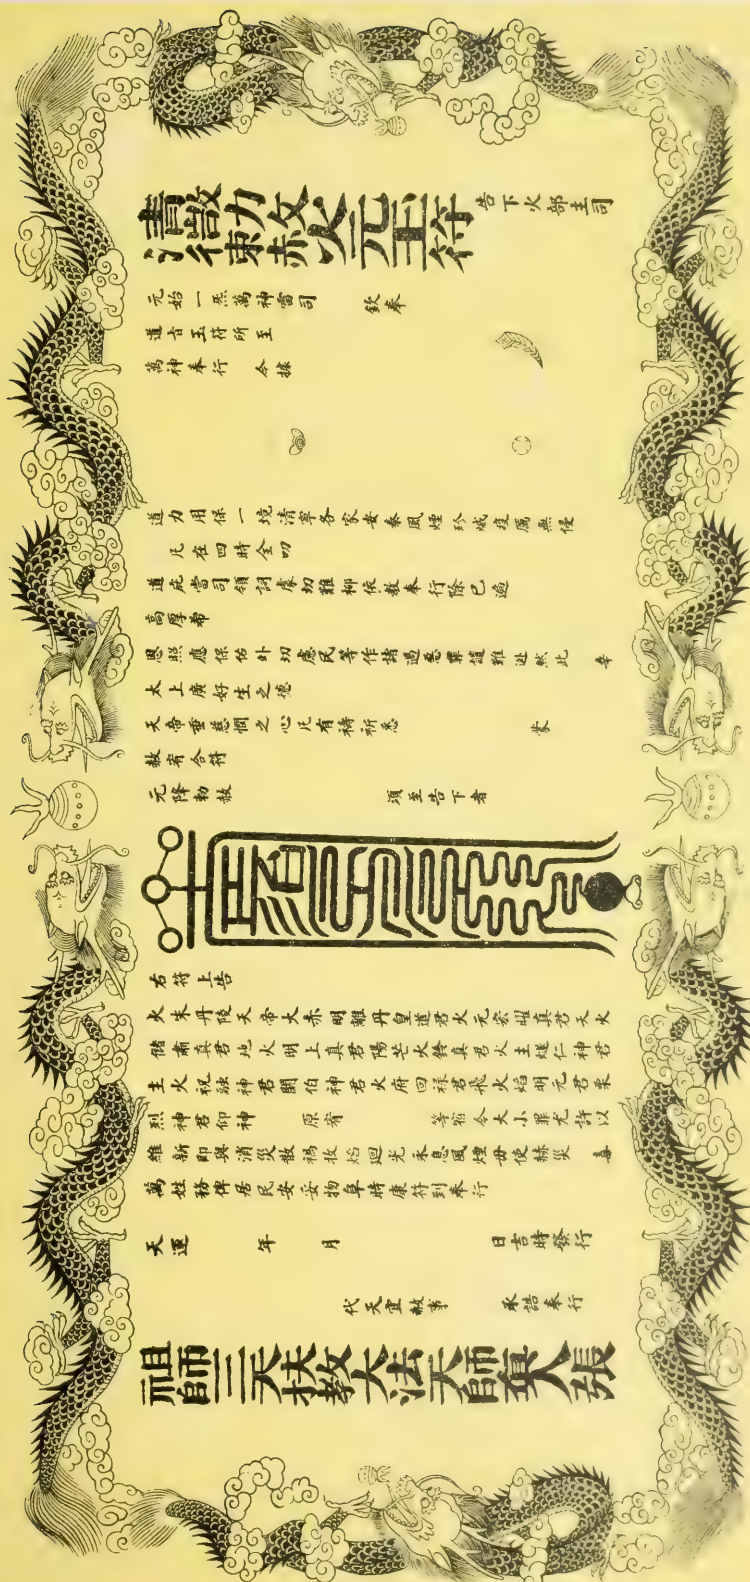 清微勅赦火元玉符 告下火部主司
元始一炁萬神雷司 欽奉
道旨玉符所至
萬神奉行 今據
道力用保一境清寧各家安泰風煙殄滅疫厲無侵
凡在四時全叨
道庇當司領詞虔切難抑依教奉行除已遍
高厚希
恩照應保佑外切慮民等作諸過惡罪譴難逃然此 幸
太上廣好生之德
天帝垂慈憫之心凡有禱祈悉 蒙
赦宥合符
元降勅赦 須至告下者
右符上告
火朱丹陵天帝大赤明離丹皇道君火元宏曜真君天火
儲肅真君地火明上真君陽芒火鋒真君火主燧仁神君
主火祝融神君閼伯神君火府回祿君飛火焰明元君栗
烈神君仰神 原宥 等宿今大小罪尤許以
維新即與消災散禍收焰迴光永息風煙毋使赫災 毒
萬姓務俾居民安妥物阜時康符到奉行
天運 年 月 日吉時發行
代天宣赦事 承誥奉行
祖師三天扶教大法天師真人張